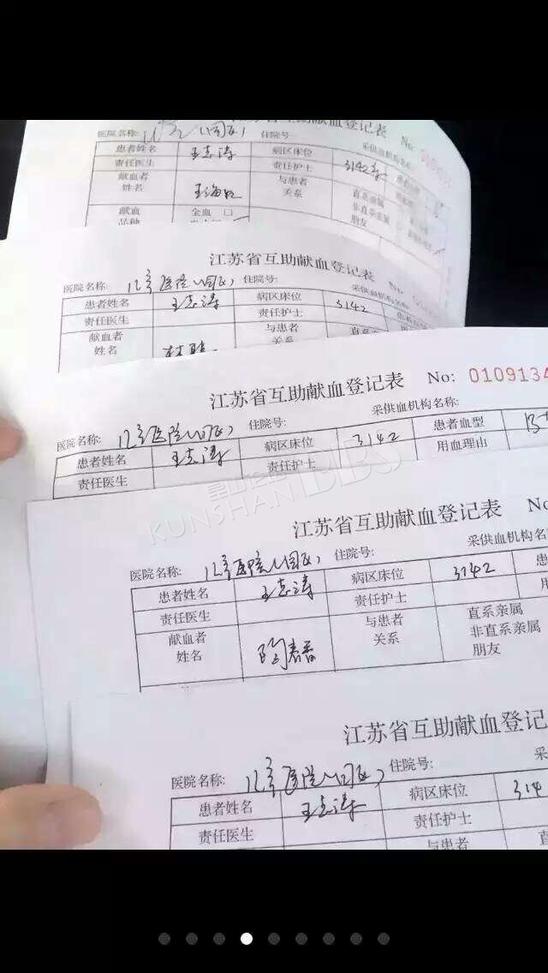 江苏省互助献血登记表 No:
医院名称: 住院号: 采供血机构名
患者姓名 王志涛 病区床位 3142
责任医生 责任护士
献血者 与患者 直系亲属
姓名 关系 非直系亲属
献血 全血 口 朋友
品种
江苏省互助献血登记表 No:
医院名称: 儿童医院(园区) 住院号: 采供血机构名
患者姓名 王志涛 病区床位 3142
责任医生 责任护士
献血者 与患者 直系
姓名 关系
江苏省互助献血登记表 No: 0109134
医院名称: 儿童医院(园区) 住院号: 采供血机构名称:
患者姓名 王志涛 病区床位 3142 患者血型
责任医生 责任护士 用血理由
KUNSHAN BBS
江苏省互助献血登记表 No
医院名称: 儿童医院(园区) 住院号: 采供血机构名
患者姓名 王志涛 病区床位 3142 患
责任医生 责任护士
献血者 与患者 直系亲属
姓名 陶春香 关系 非直系亲属
朋友
江苏省互助献血登记
医院名称: 儿童医院(园区) 住院号:
患者姓名 王志涛 病区床位 314
责任医生 责任护士
与患者